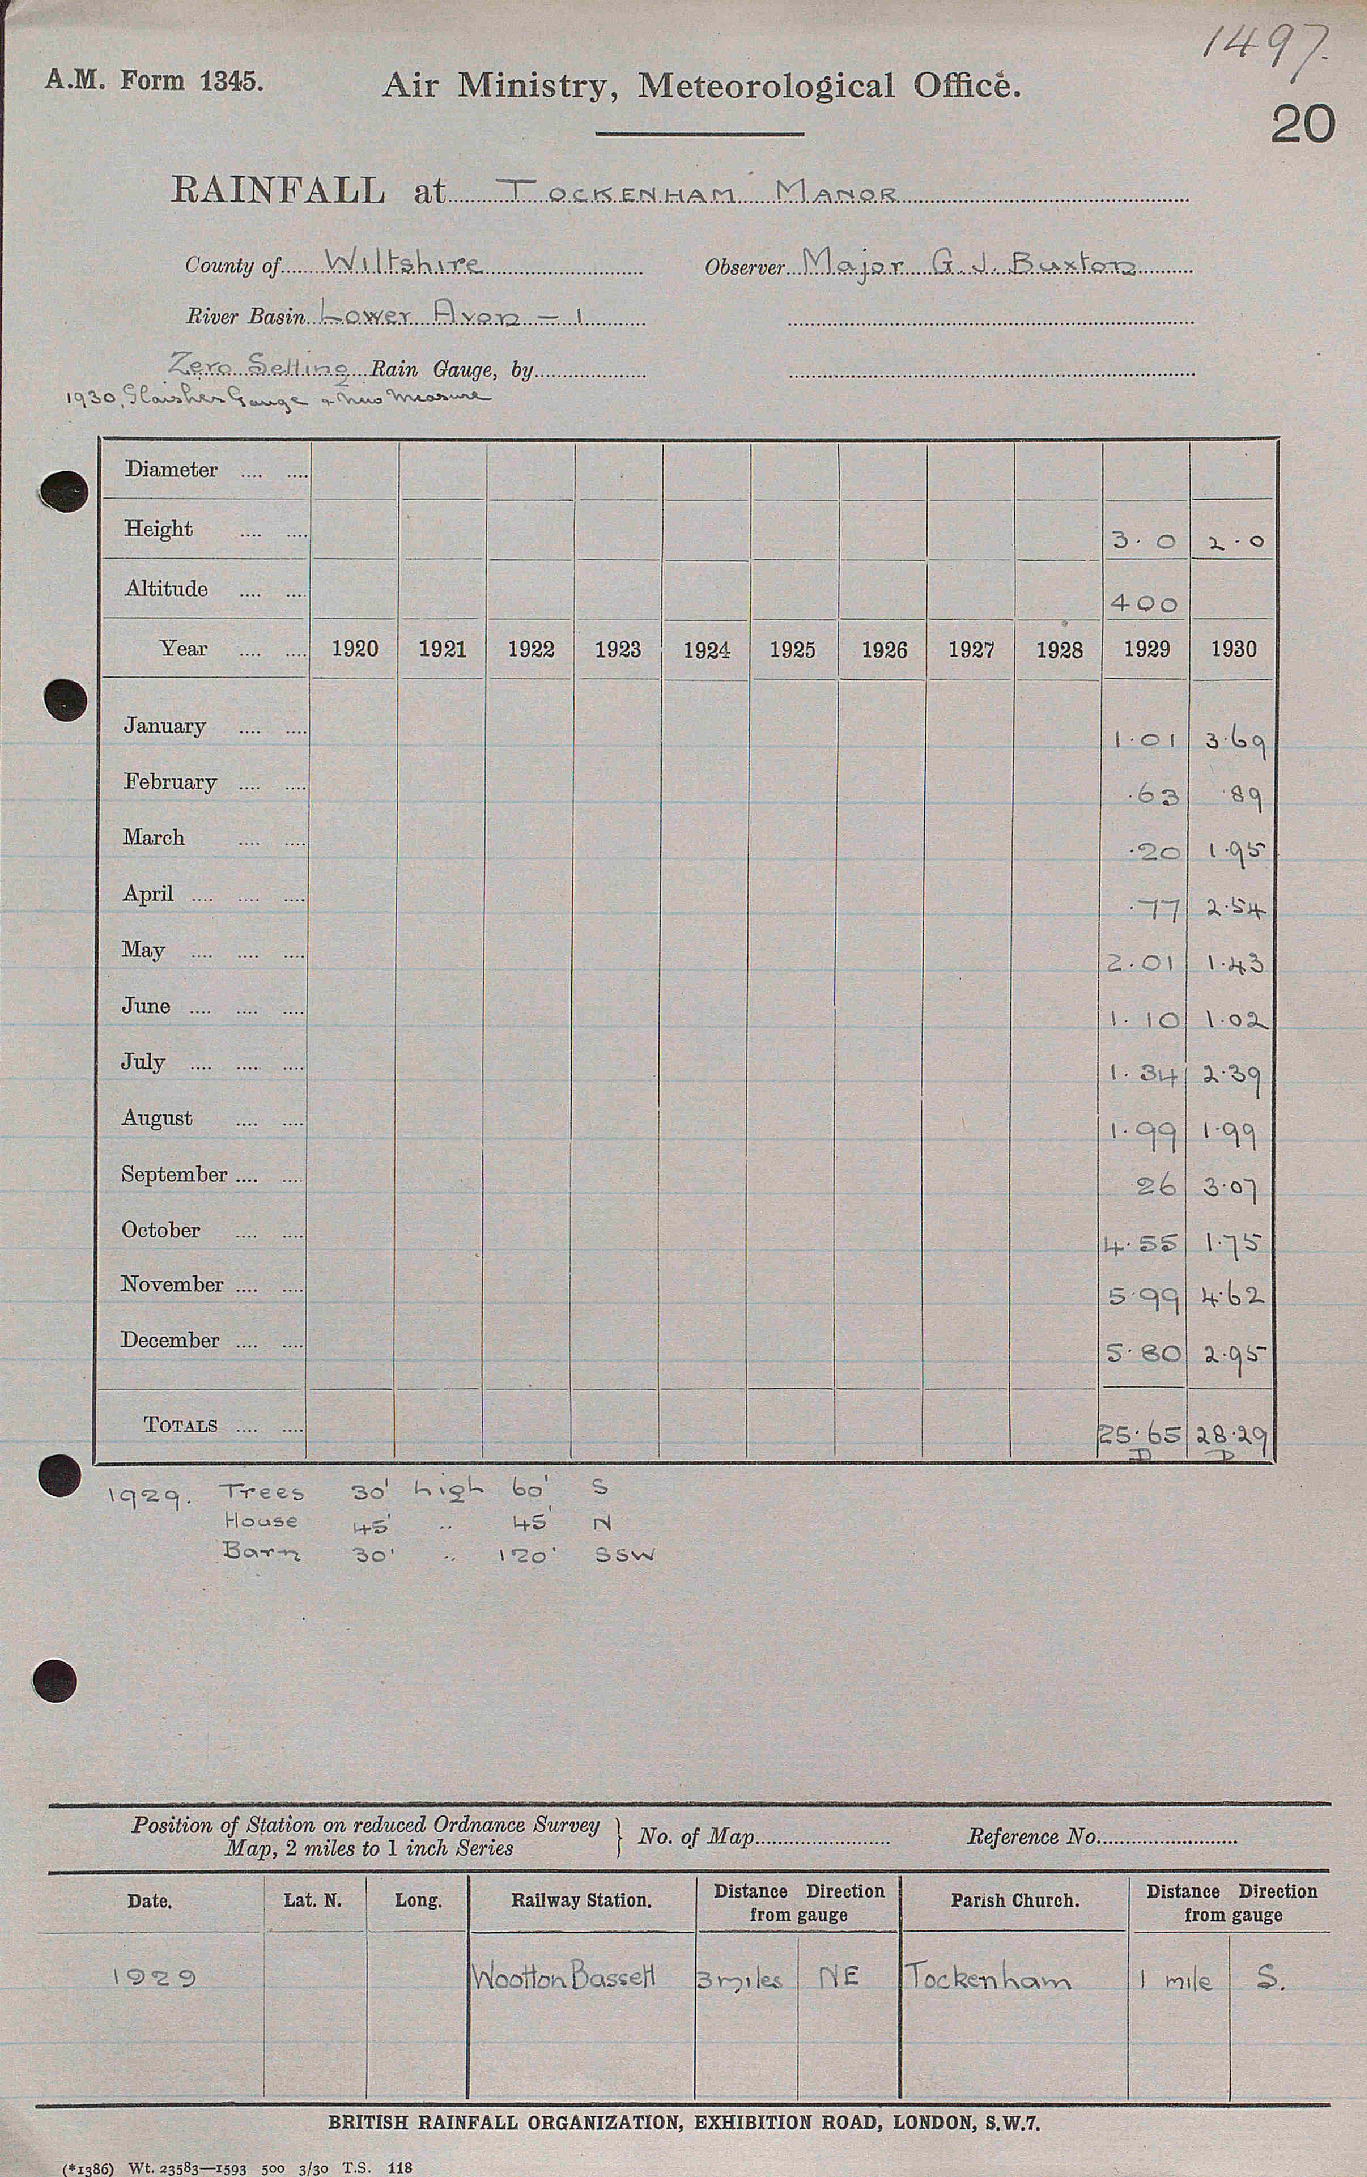 1497.
A.M. Form 1345. Air Ministry, Meteorological Office.
20
RAINFALL at TOCKENHAM MANOR
County of Wiltshire Observer Major G. J. Buxton
River Basin Lower Avon – 1
Zero Setting Rain Gauge, by
1930, Glaisher Gauge + New Measure
Diameter .... ....
Height .... .... 3.0 2.0
Altitude .... .... 400
Year .... .... 1920 1921 1922 1923 1924 1925 1926 1927 1928 1929 1930
January .... .... 1.01 3.69
February .... .... .63 .89
March .... .... .20 1.95
April .... .... .... .77 2.54
May .... .... .... 2.01 1.43
June .... .... .... 1.10 1.02
July .... .... .... 1.34 2.39
August .... .... 1.99 1.99
September .... .... 26 3.07
October .... .... 4.55 1.75
November .... .... 5.99 4.62
December .... .... 5.80 2.95
TOTALS .... .... 25.65 28.29
D D
1929. Trees 30' high 60' S
House 45' .. 45' N
Barn 30' .. 120' SSW
Position of Station on reduced Ordnance Survey
Map, 2 miles to 1 inch Series } No. of Map Reference No.
Date. Lat. N. Long. Railway Station. Distance Direction from gauge Parish Church. Distance Direction from gauge
1929 Wootton Bassett 3 miles NE Tockenham 1 mile S.
BRITISH RAINFALL ORGANIZATION, EXHIBITION ROAD, LONDON, S.W.7.
(*1386) Wt. 23583—1593 500 3/30 T.S. 118